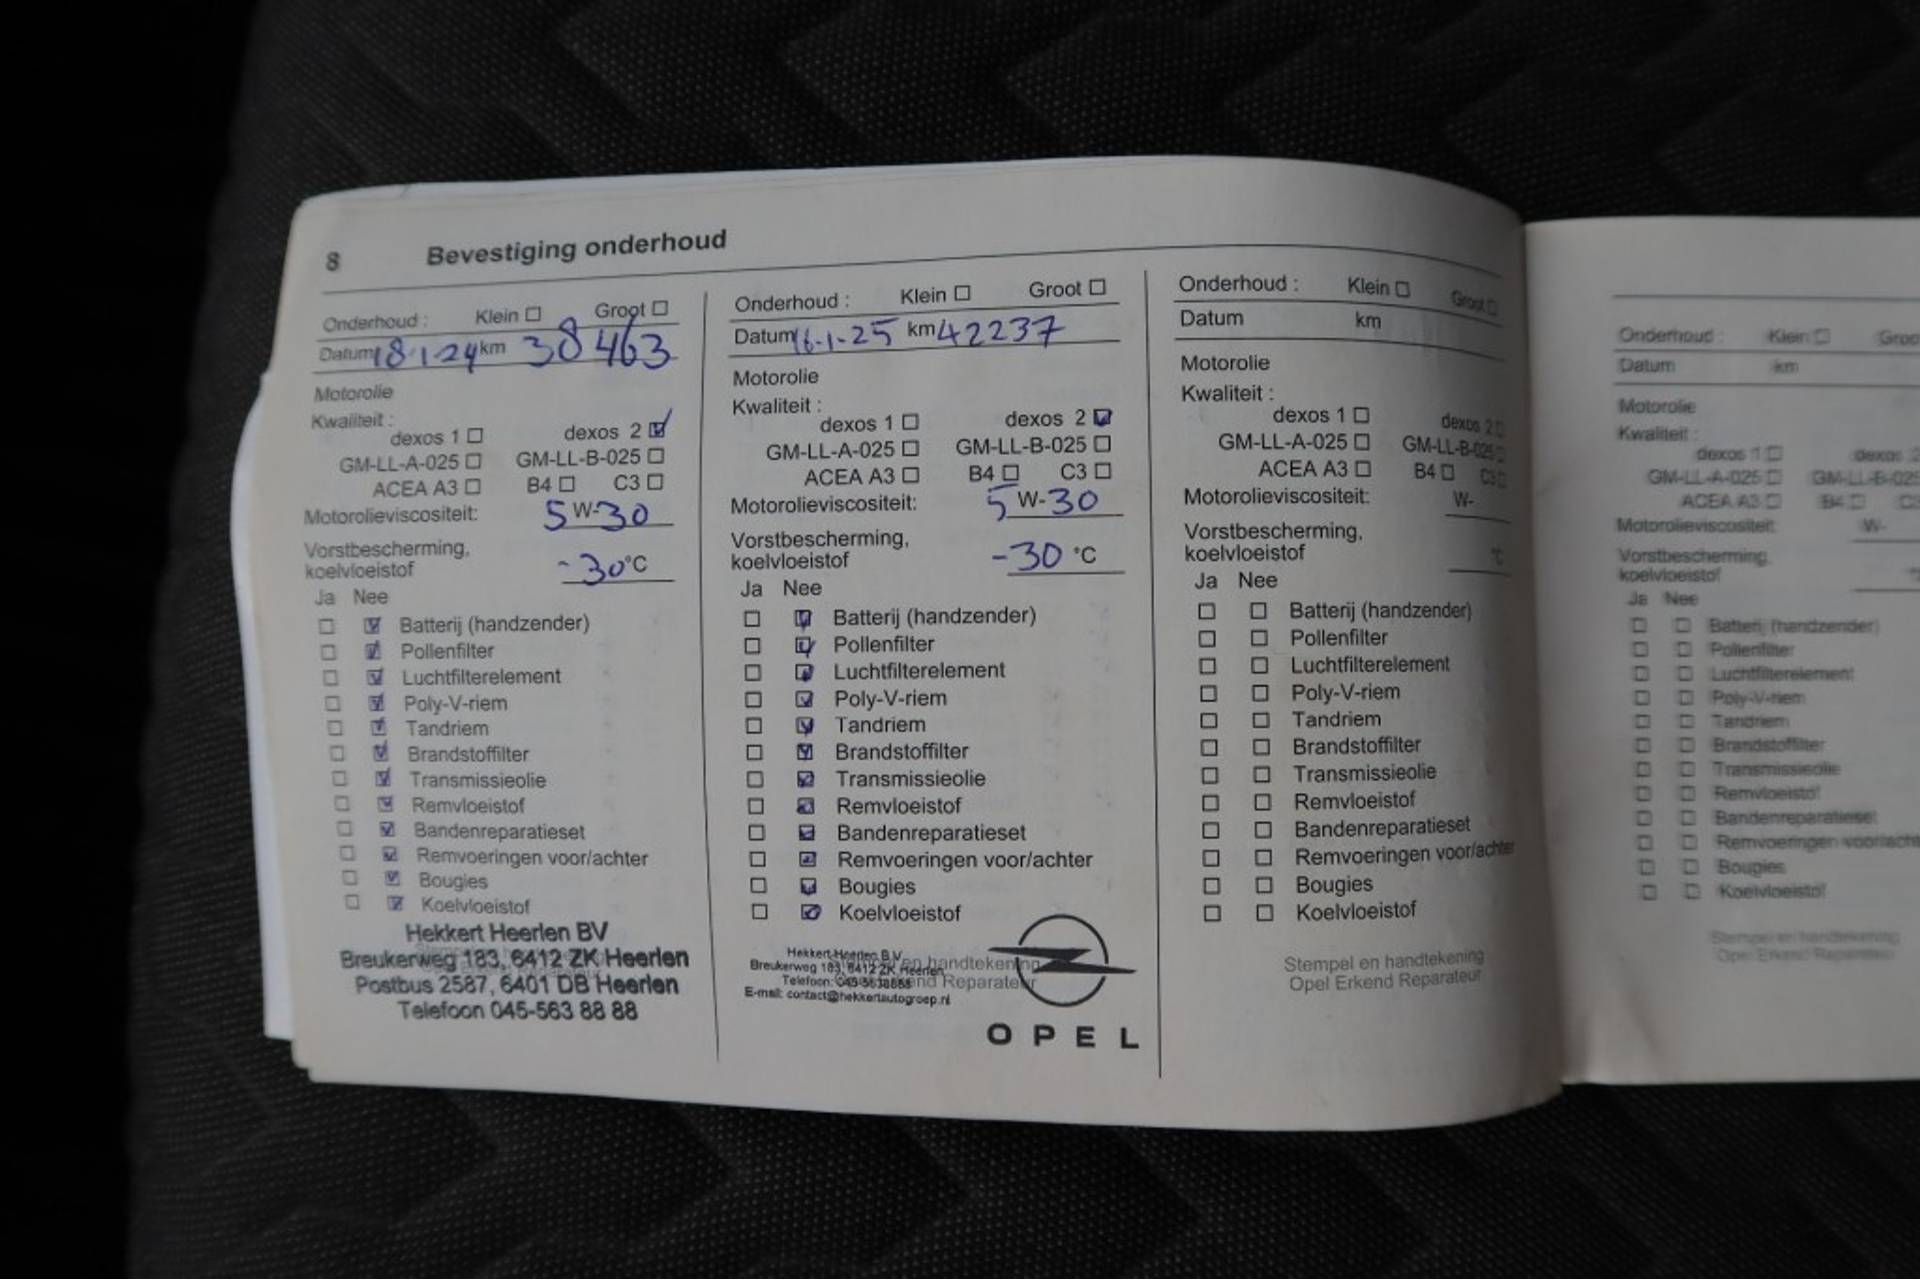 8 Bevestiging onderhoud
Onderhoud : Klein ☐ Groot ☐
Datum 18-1-24 km 38463
Motorolie
Kwaliteit :
dexos 1 ☐ dexos 2 ☑
GM-LL-A-025 ☐ GM-LL-B-025 ☐
ACEA A3 ☐ B4 ☐ C3 ☐
Motorolieviscositeit: 5 W-30
Vorstbescherming,
koelvloeistof -30°C
Ja Nee
☐ ☑ Batterij (handzender)
☐ ☑ Pollenfilter
☐ ☑ Luchtfilterelement
☐ ☑ Poly-V-riem
☐ ☑ Tandriem
☐ ☑ Brandstoffilter
☐ ☑ Transmissieolie
☐ ☑ Remvloeistof
☐ ☑ Bandenreparatieset
☐ ☑ Remvoeringen voor/achter
☐ ☑ Bougies
☐ ☑ Koelvloeistof
Hekkert Heerlen BV
Breukerweg 183, 6412 ZK Heerlen
Postbus 2587, 6401 DB Heerlen
Telefoon 045-563 88 88
Onderhoud : Klein ☐ Groot ☐
Datum 16-1-25 km 42237
Motorolie
Kwaliteit :
dexos 1 ☐ dexos 2 ☑
GM-LL-A-025 ☐ GM-LL-B-025 ☐
ACEA A3 ☐ B4 ☐ C3 ☐
Motorolieviscositeit: 5 W-30
Vorstbescherming,
koelvloeistof -30 °C
Ja Nee
☐ ☑ Batterij (handzender)
☐ ☑ Pollenfilter
☐ ☑ Luchtfilterelement
☐ ☑ Poly-V-riem
☐ ☑ Tandriem
☐ ☑ Brandstoffilter
☐ ☑ Transmissieolie
☐ ☑ Remvloeistof
☐ ☑ Bandenreparatieset
☐ ☑ Remvoeringen voor/achter
☐ ☑ Bougies
☐ ☑ Koelvloeistof
Hekkert Heerlen B.V.
Breukerweg 183, 6412 ZK Heerlen en handtekening
Telefoon: 045-5638888 Reparateur
E-mail: contact@hekkertautogroep.nl
OPEL
Onderhoud : Klein ☐ Groot ☐
Datum km
Motorolie
Kwaliteit :
dexos 1 ☐ dexos 2 ☐
GM-LL-A-025 ☐ GM-LL-B-025 ☐
ACEA A3 ☐ B4 ☐ C3 ☐
Motorolieviscositeit: W-
Vorstbescherming,
koelvloeistof °C
Ja Nee
☐ ☐ Batterij (handzender)
☐ ☐ Pollenfilter
☐ ☐ Luchtfilterelement
☐ ☐ Poly-V-riem
☐ ☐ Tandriem
☐ ☐ Brandstoffilter
☐ ☐ Transmissieolie
☐ ☐ Remvloeistof
☐ ☐ Bandenreparatieset
☐ ☐ Remvoeringen voor/achter
☐ ☐ Bougies
☐ ☐ Koelvloeistof
Stempel en handtekening
Opel Erkend Reparateur
Onderhoud : Klein ☐
Datum km
Motorolie
Kwaliteit :
dexos 1 ☐ dexos 2
GM-LL-A-025 ☐ GM-LL-B-025
ACEA A3 ☐ B4 ☐
Motorolieviscositeit: W-
Vorstbescherming,
koelvloeistof
Ja Nee
☐ ☐ Batterij (handzender)
☐ ☐ Pollenfilter
☐ ☐ Luchtfilterelement
☐ ☐ Poly-V-riem
☐ ☐ Tandriem
☐ ☐ Brandstoffilter
☐ ☐ Transmissieolie
☐ ☐ Remvloeistof
☐ ☐ Bandenreparatieset
☐ ☐ Remvoeringen
☐ ☐ Bougies
☐ ☐ Koelvloeistof
Stempel en handtekening
Opel Erkend Reparateur